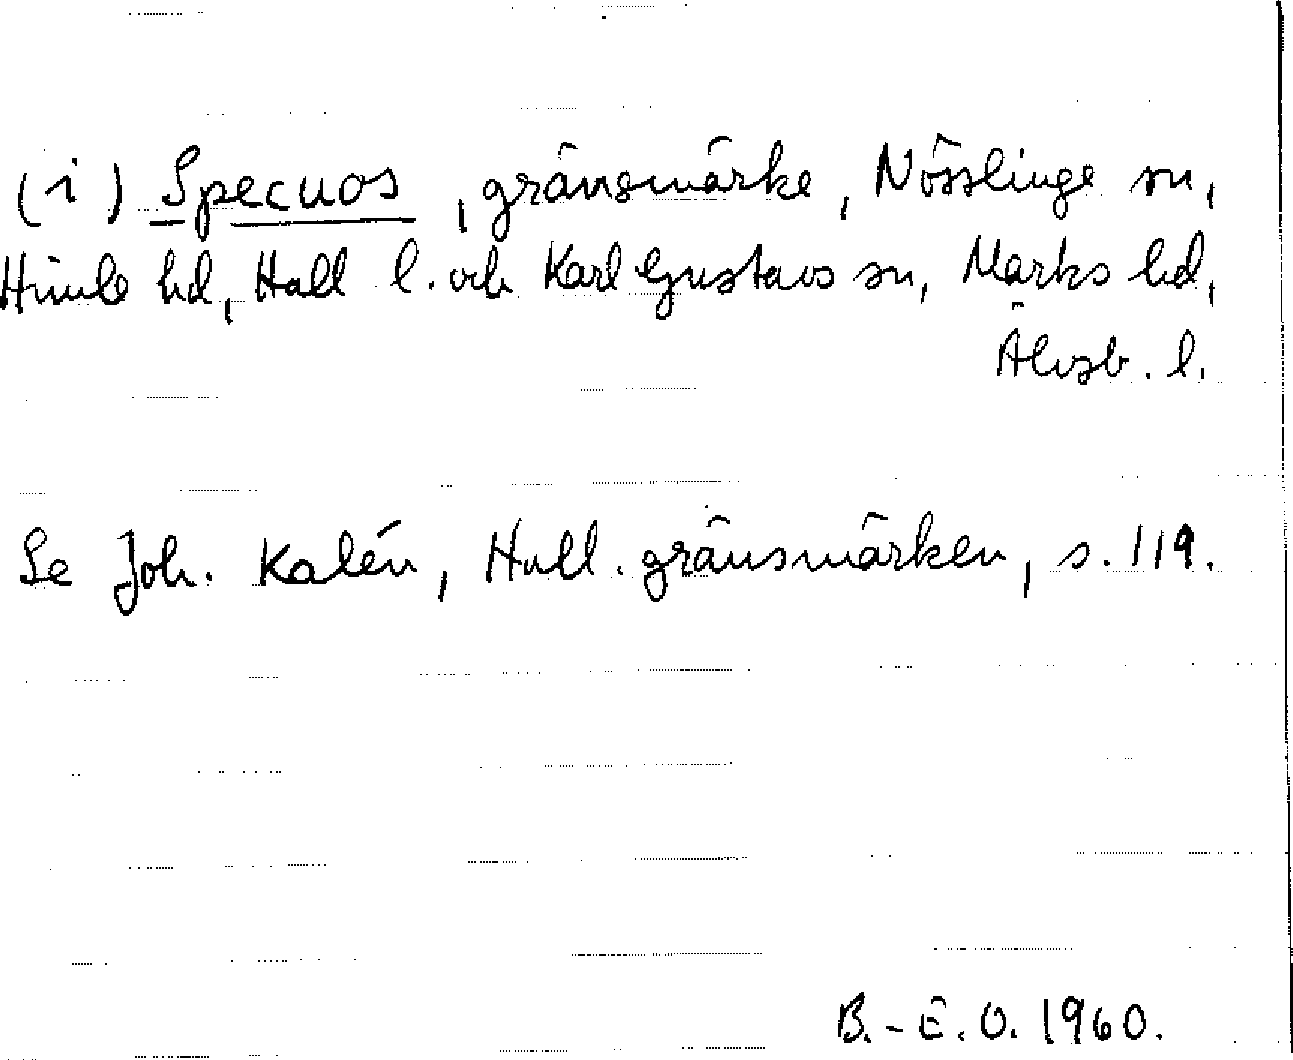 (i) Specuos, gränsmärke, Nösslinge sn,
Himle hd, Hall l. och Karl Gustavs sn, Marks hd,
Älvsb. l.
Se Joh. Kalén, Hall. gränsmärken, s. 119.
B.-E.O. 1960.